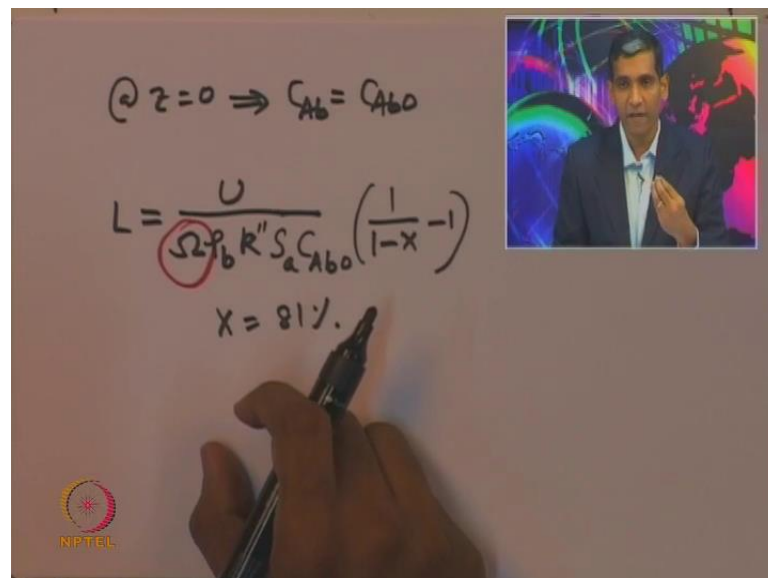 @ z=0 ⇒ C_Ab = C_Ab0
L = U / (Ω ρ_b k'' S_a C_Ab0) (1/(1-X) - 1)
X = 81%.
NPTEL